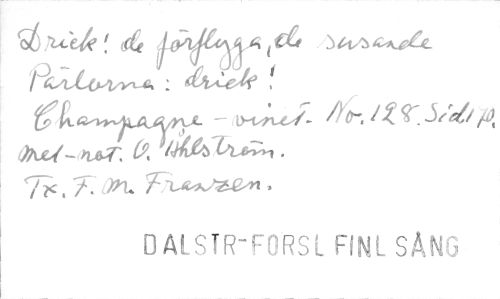 Drick! de förflyga, de susande
Pärlorna: drick!
Champagne-vinet. No. 128. Sid. 170.
mel-not. O. Åhlström.
Tx. F. M. Franzen.
DALSTR-FORSL FINL SÅNG